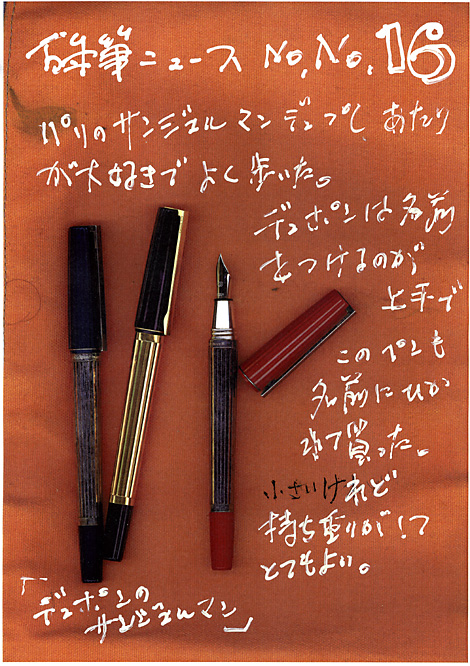 万年筆ニュース No, No, 16
パリのサンジェルマン デュプレ あたり
が大好きで よく歩いた。
デュポンは名前
をつけるのが
上手で
このペンも
名前にひか
れて買った。
小さいけれど
持ち重りがして
とてもよい。
「デュポンの
サンジェルマン」